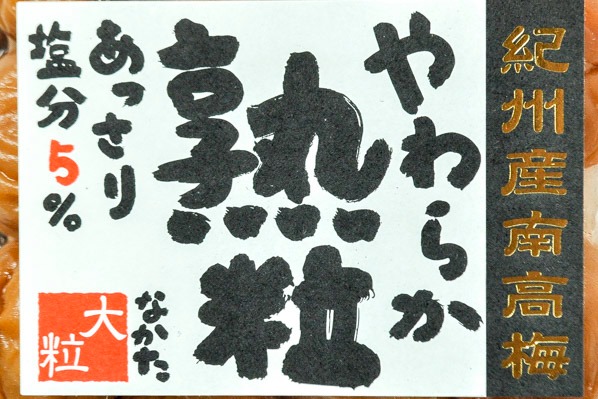 紀州産南高梅
やわらか
熟粒
あっさり
塩分5%
なかた
大粒